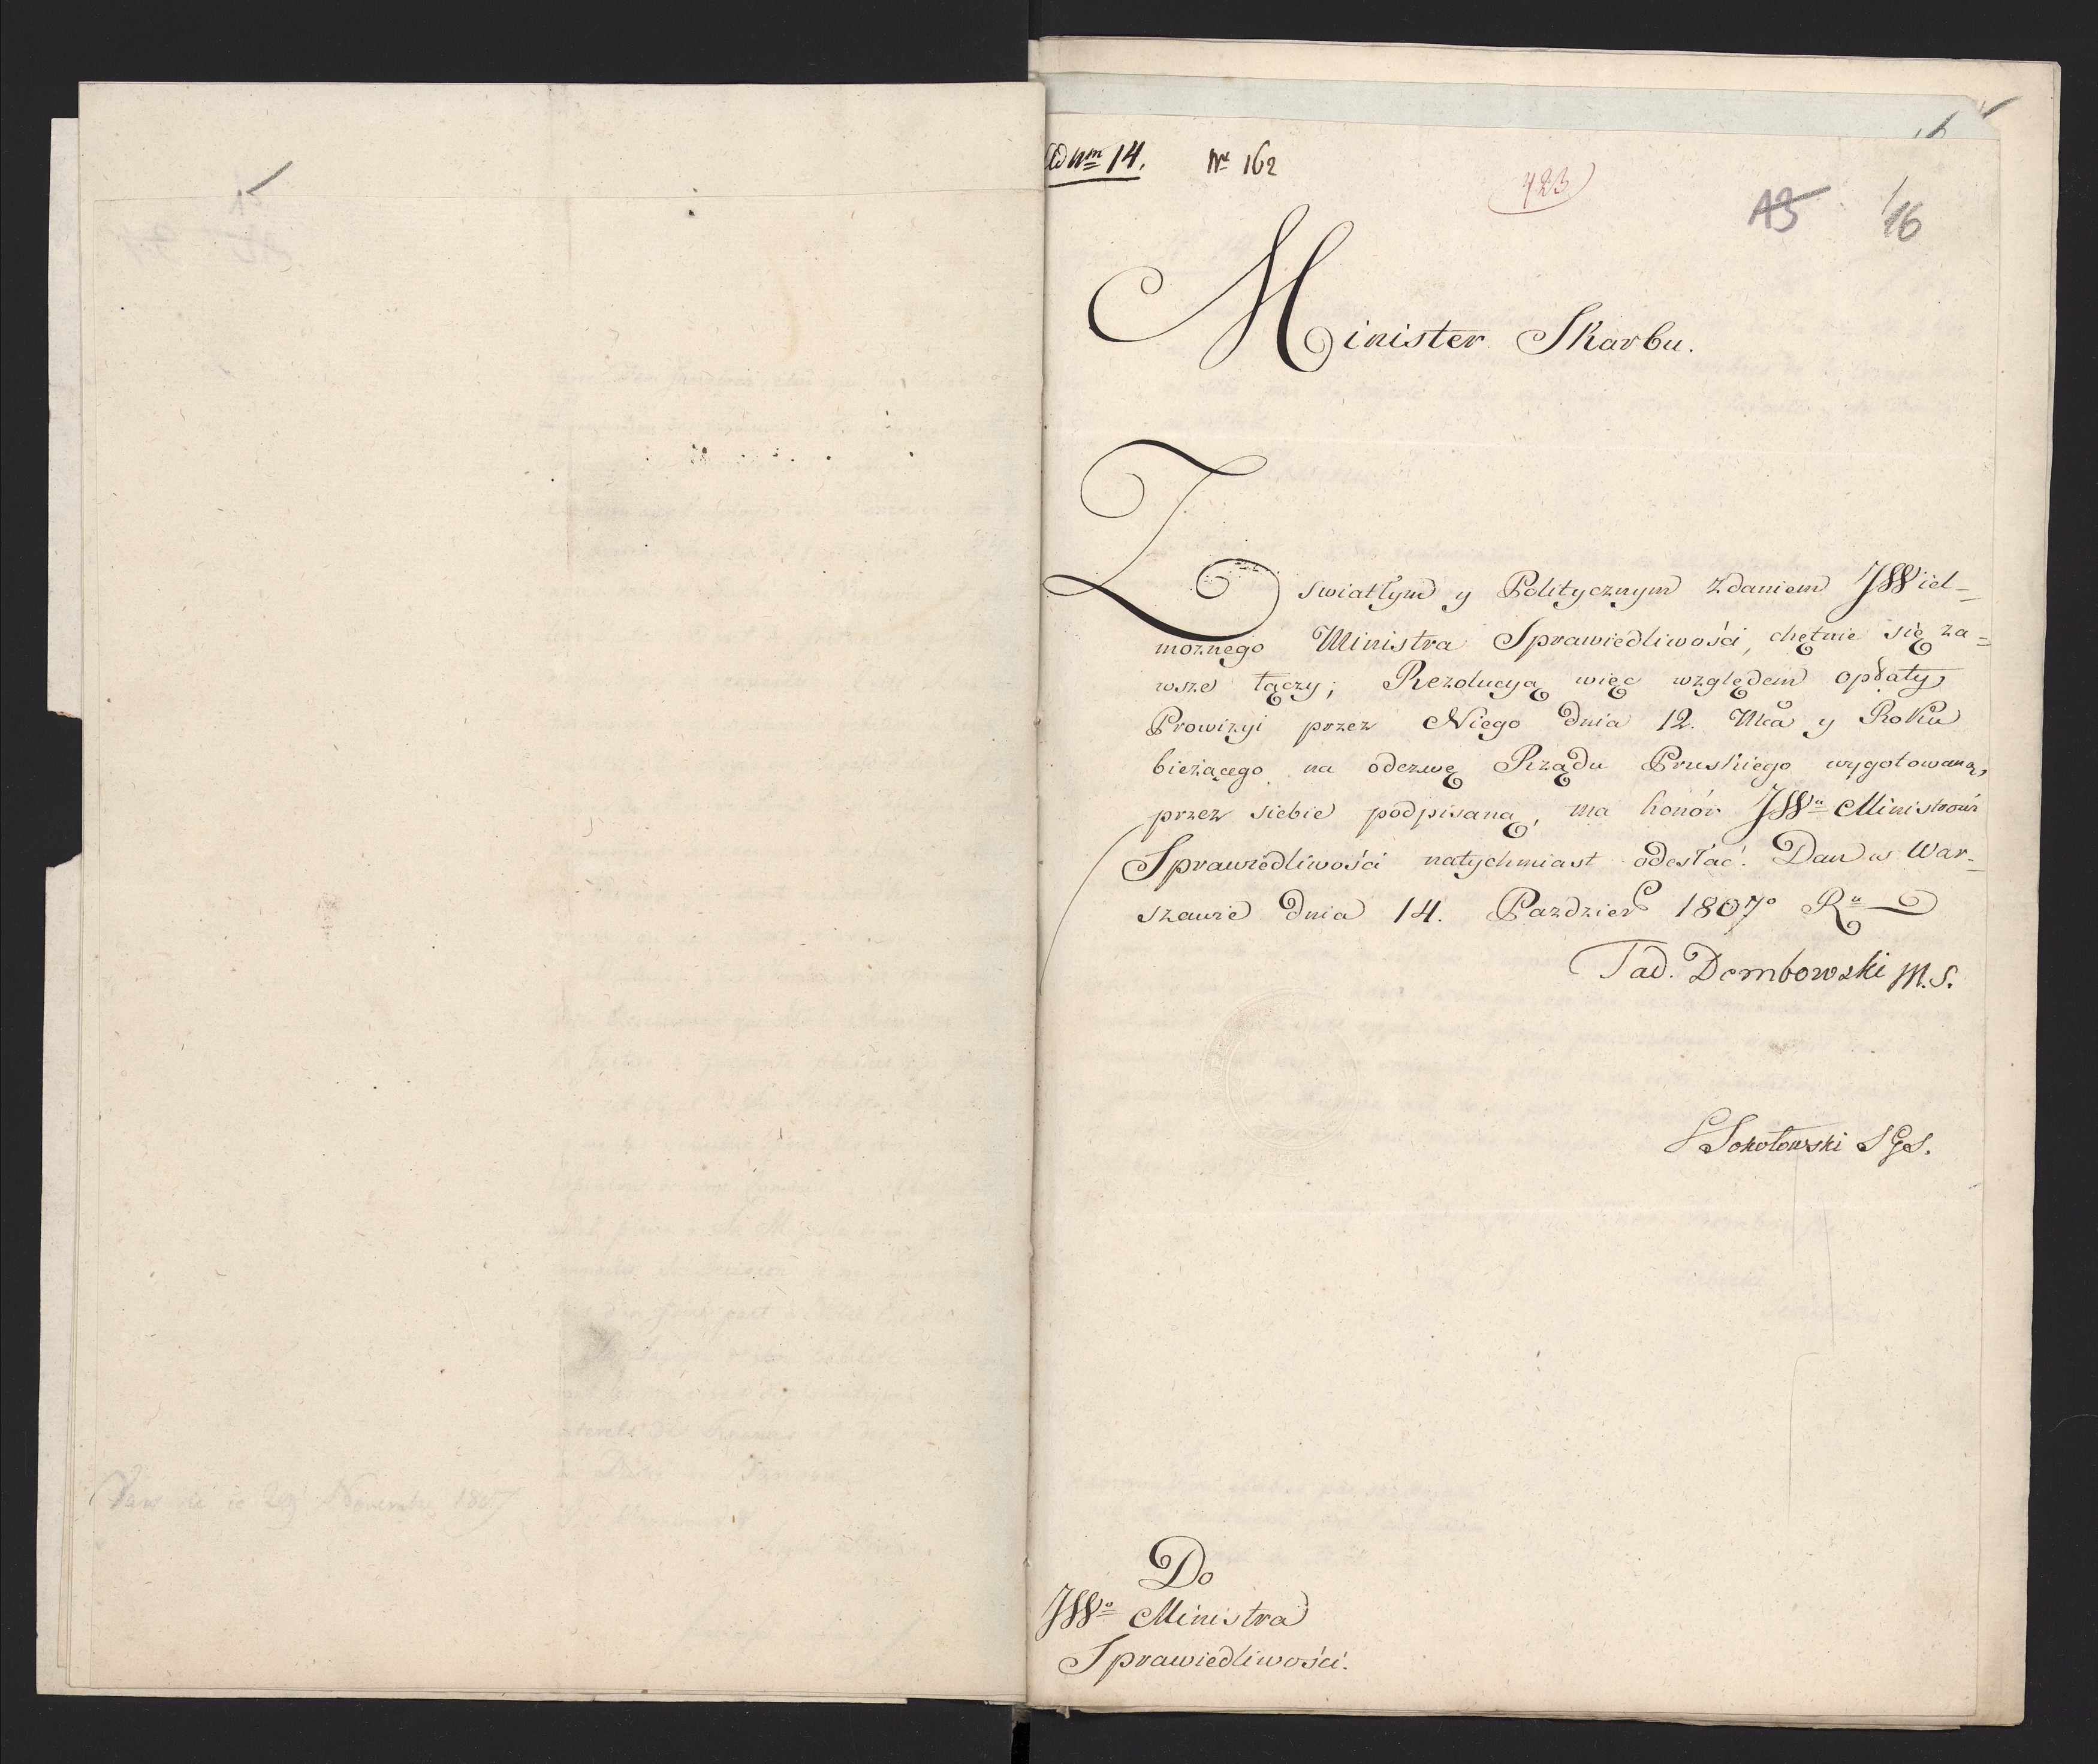 ad num 14. Nr 162
423
A3 16
Minister Skarbu.
Z swiatłym y Politycznym zdaniem JWiel-
możnego Ministra Sprawiedliwości, chętnie się za-
wsze łączy; Rezolucyą więc względem opłaty
Prowizyi przez Niego dnia 12. Mca y Roku
bieżącego na odezwę Rządu Pruskiego wygotowaną,
przez siebie podpisaną, ma honór JWu Ministrowi
Sprawiedliwości natychmiast odesłać. Dan w War-
szawie dnia 14. Pazdzier 1807o Ru
Tad. Dembowski M.S.
Sokołowski SGS.
Do
JWo Ministra
Sprawiedliwości.